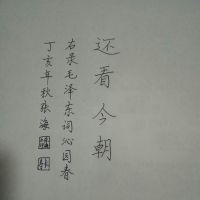 还看今朝
右录毛泽东词沁园春
丁亥年秋张海